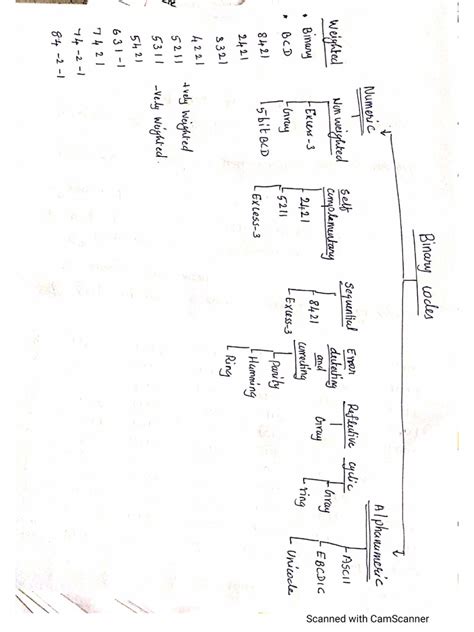 Binary codes
Numeric
Alphanumeric
Weighted
• Binary
• BCD
8421
2421
3321
4221
5211
5311
5421
631-1
7421
74-2-1
84-2-1
+vely weighted
-vely weighted.
Non weighted
Excess-3
Gray
5 bit BCD
Self
complementary
2421
5211
Excess-3
Sequential
8421
Excess-3
Error
detecting
and
correcting
Parity
Hamming
Ring
Reflective
Gray
cyclic
Gray
ring
ASCII
EBCDIC
Unicode
Scanned with CamScanner